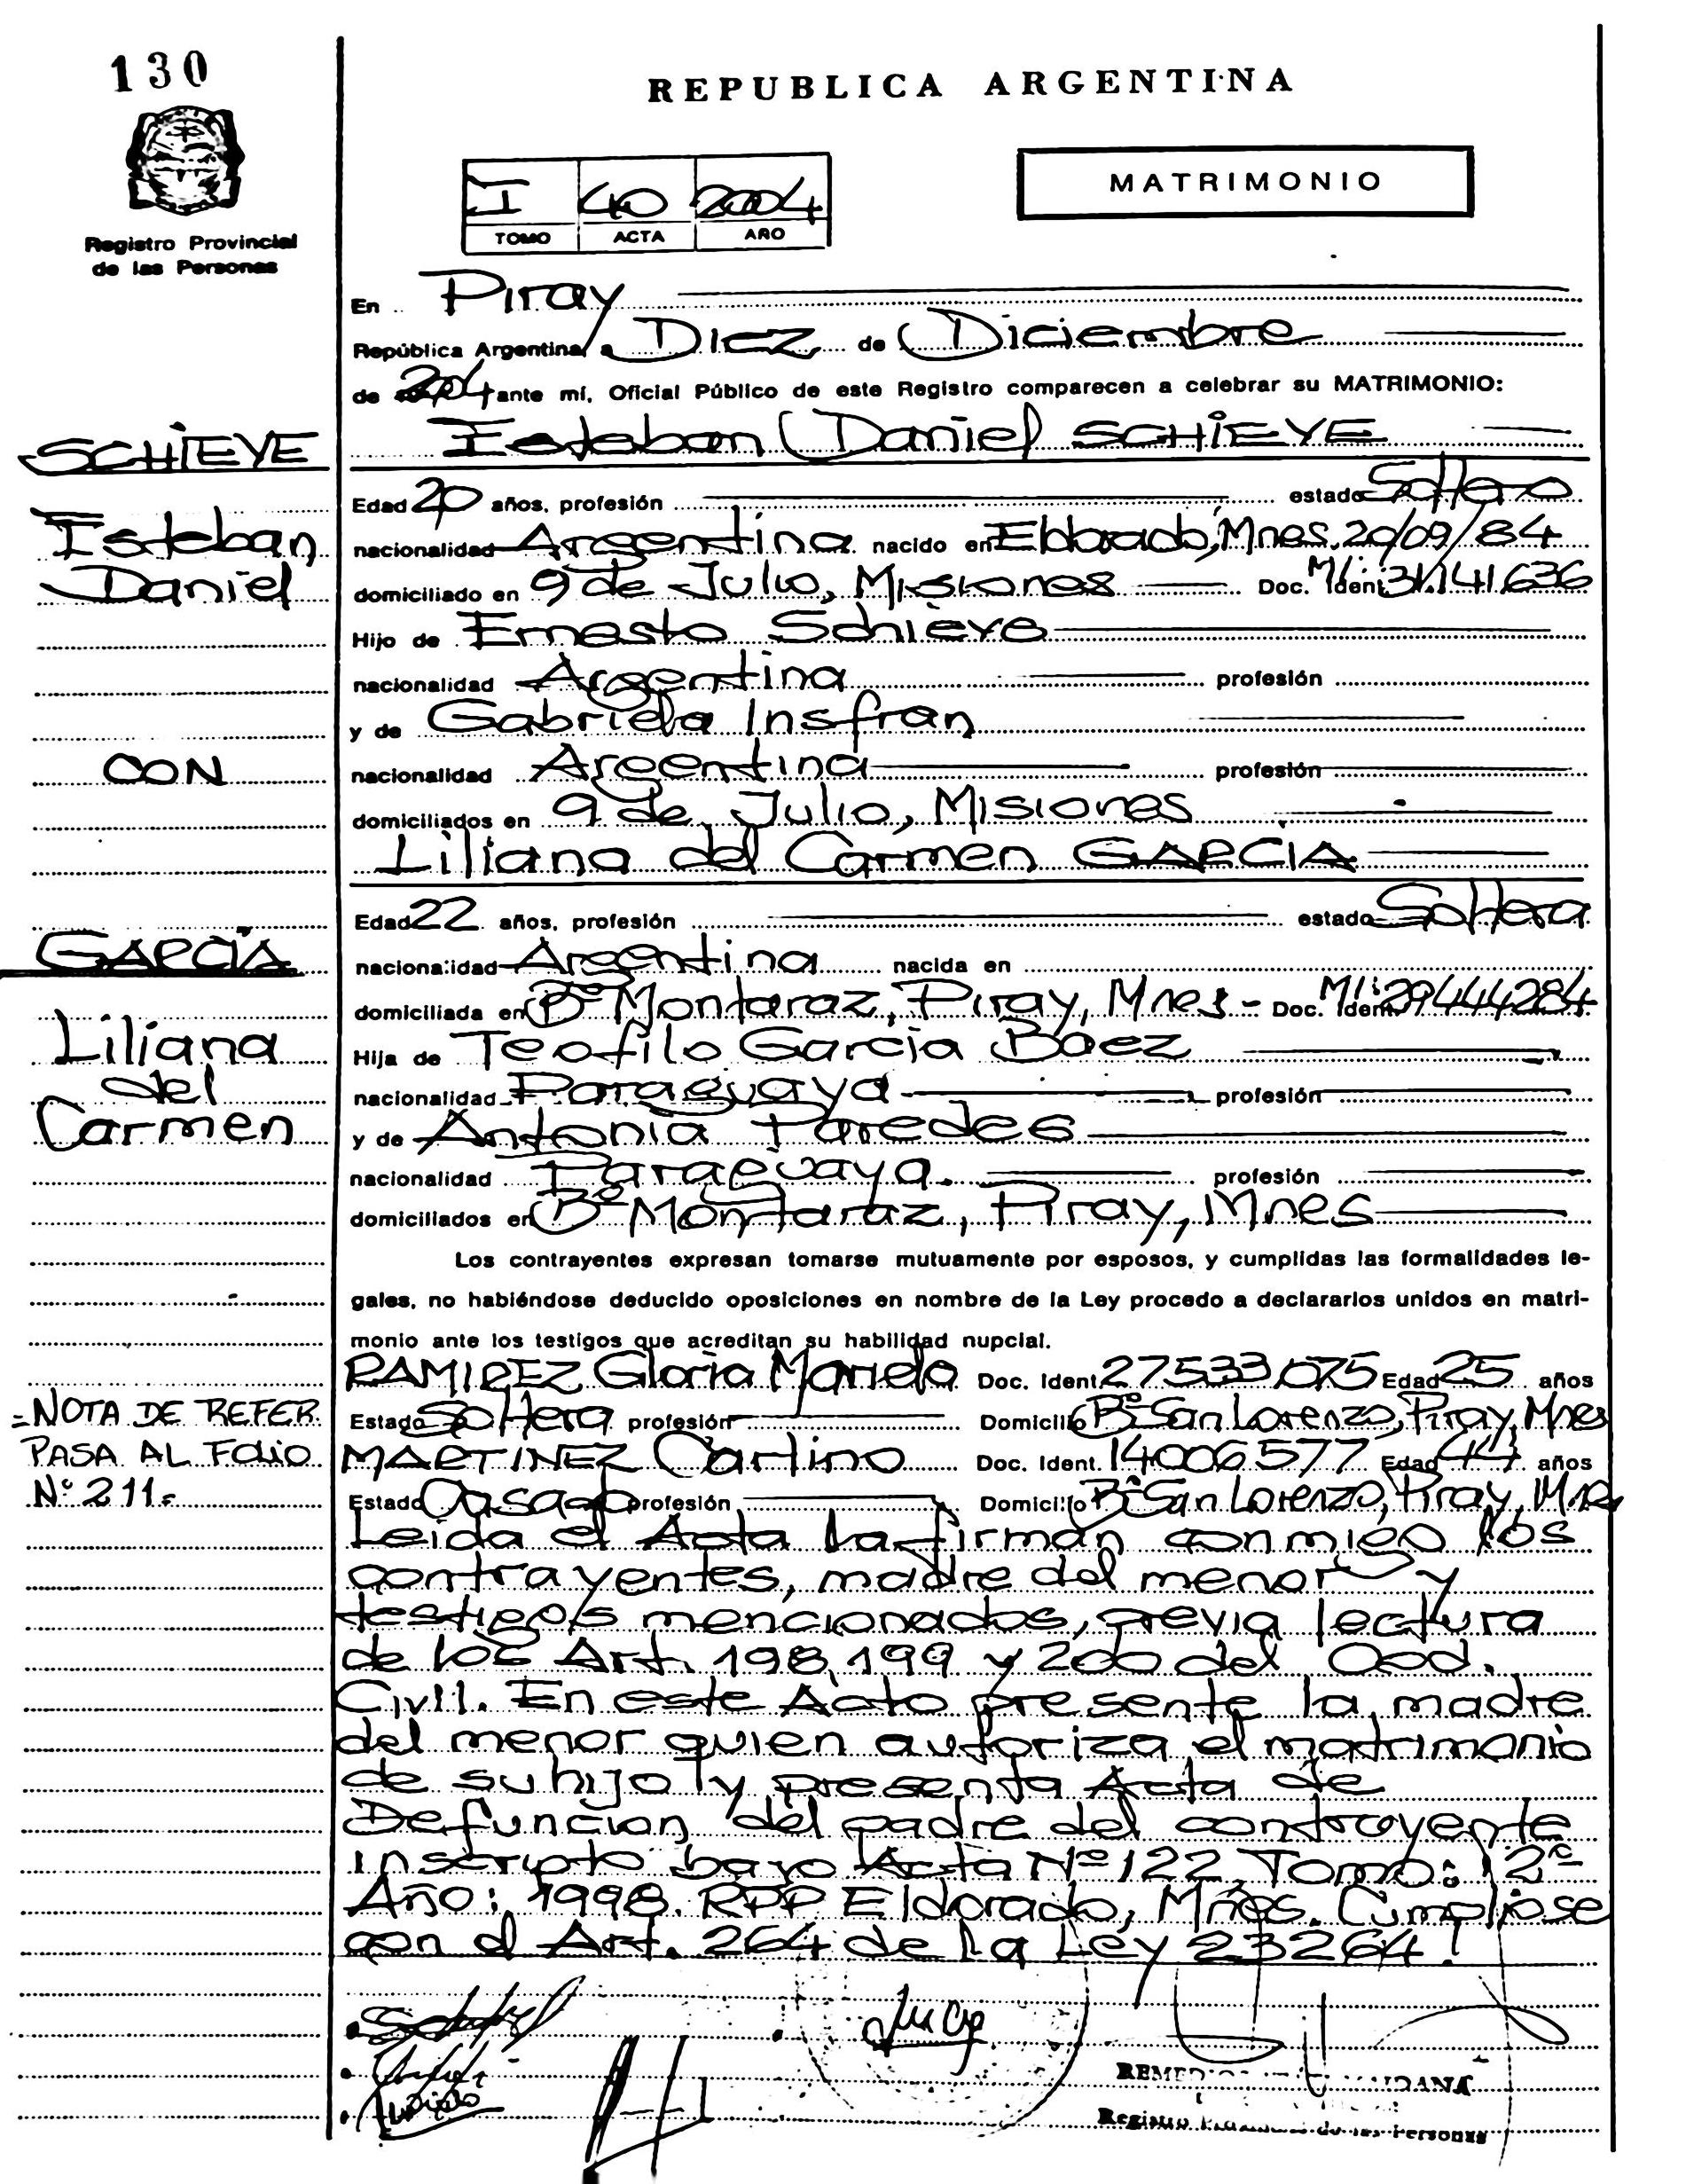 130
REPUBLICA ARGENTINA
MATRIMONIO
I 40 2004
TOMO ACTA AÑO
Registro Provincial
de las Personas
En Piray
República Argentina, a Diez de Diciembre
de 2004 ante mí, Oficial Público de este Registro comparecen a celebrar su MATRIMONIO:
SCHIEVE
Esteban Daniel SCHIEVE
Edad 20 años, profesión estado Soltero
Esteban
nacionalidad Argentina nacido en Eldorado, Mnes. 20/09/84
Daniel
domiciliado en 9 de Julio, Misiones Doc. Ident. M.I: 31.141.636
Hijo de Ernesto Schieve
nacionalidad Argentina profesión
y de Gabriela Insfran
CON
nacionalidad Argentina profesión
domiciliados en 9 de Julio, Misiones
Liliana del Carmen GARCIA
Edad 22 años, profesión estado Soltera
GARCÍA
nacionalidad Argentina nacida en
domiciliada en Bº Montaraz, Piray, Mnes - Doc. Ident. M.I: 29444284
Liliana
Hija de Teofilo Garcia Baez
del
nacionalidad Paraguaya profesión
Carmen
y de Antonia Paredes
nacionalidad Paraguaya. profesión
domiciliados en Bº Montaraz, Piray, Mnes
Los contrayentes expresan tomarse mutuamente por esposos, y cumplidas las formalidades le-
gales, no habiéndose deducido oposiciones en nombre de la Ley procedo a declararlos unidos en matri-
monio ante los testigos que acreditan su habilidad nupcial.
RAMIREZ Gloria Mariela Doc. Ident. 27.533.075 Edad 25 años
=NOTA DE REFER.
Estado Soltera profesión Domicilio Bº San Lorenzo, Piray, Mnes
PASA AL FOLIO
MARTINEZ Carlino Doc. Ident. 14006577 Edad 44 años
Nº 211=
Estado Casado profesión Domicilio Bº San Lorenzo, Piray, Mnes
Leida el Acta la firman conmigo los
contrayentes, madre del menor y
testigos mencionados, previa lectura
de los Art. 198, 199 y 200 del Cod.
Civil. En este Acto presente la madre
del menor quien autoriza el matrimonio
de su hijo y presenta Acta de
Defuncion del padre del contrayente
inscripto bajo Acta Nº 122, Tomo: 2º
Año: 1998. RPP Eldorado, Mnes. Cumpliose
con el Art. 264 de la Ley 23264.
Registro de las Personas